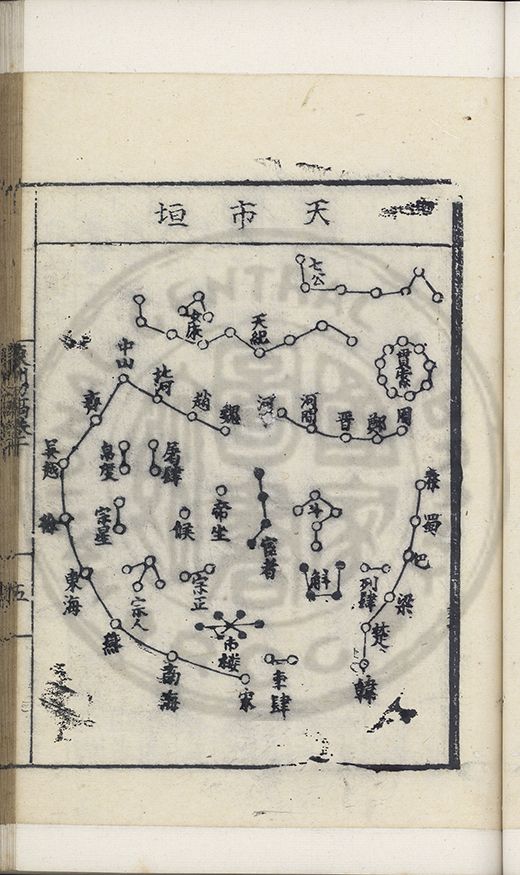 天市垣
七公
貫索
天紀
床
周
鄭
晉
河間
河
魏
趙
河
中山
齊
吳越
東海
燕
南海
宋
蜀
巴
梁
楚
韓
斗
宦者
帝坐
候
屠肆
宗星
列肆
斛
宗正
宗人
市楼
車肆
伍